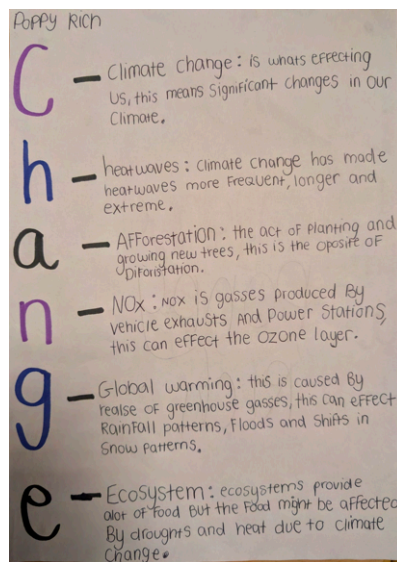 Poppy Rich
C - Climate change: is whats effecting
us, this means significant changes in our
climate.
h - heatwaves: climate change has made
heatwaves more frequent, longer and
extreme.
a - Afforestation: the act of planting and
growing new trees, this is the oposite of
Diforistation.
n - NOx: NOx is gasses produced by
vehicle exhausts and power stations,
this can effect the ozone layer.
g - Global warming: this is caused by
realse of greenhouse gasses, this can effect
Rainfall patterns, floods and shifts in
snow patterns.
e - Ecosystem: ecosystems provide
alot of food but the food might be affected
By droughts and heat due to climate
change.